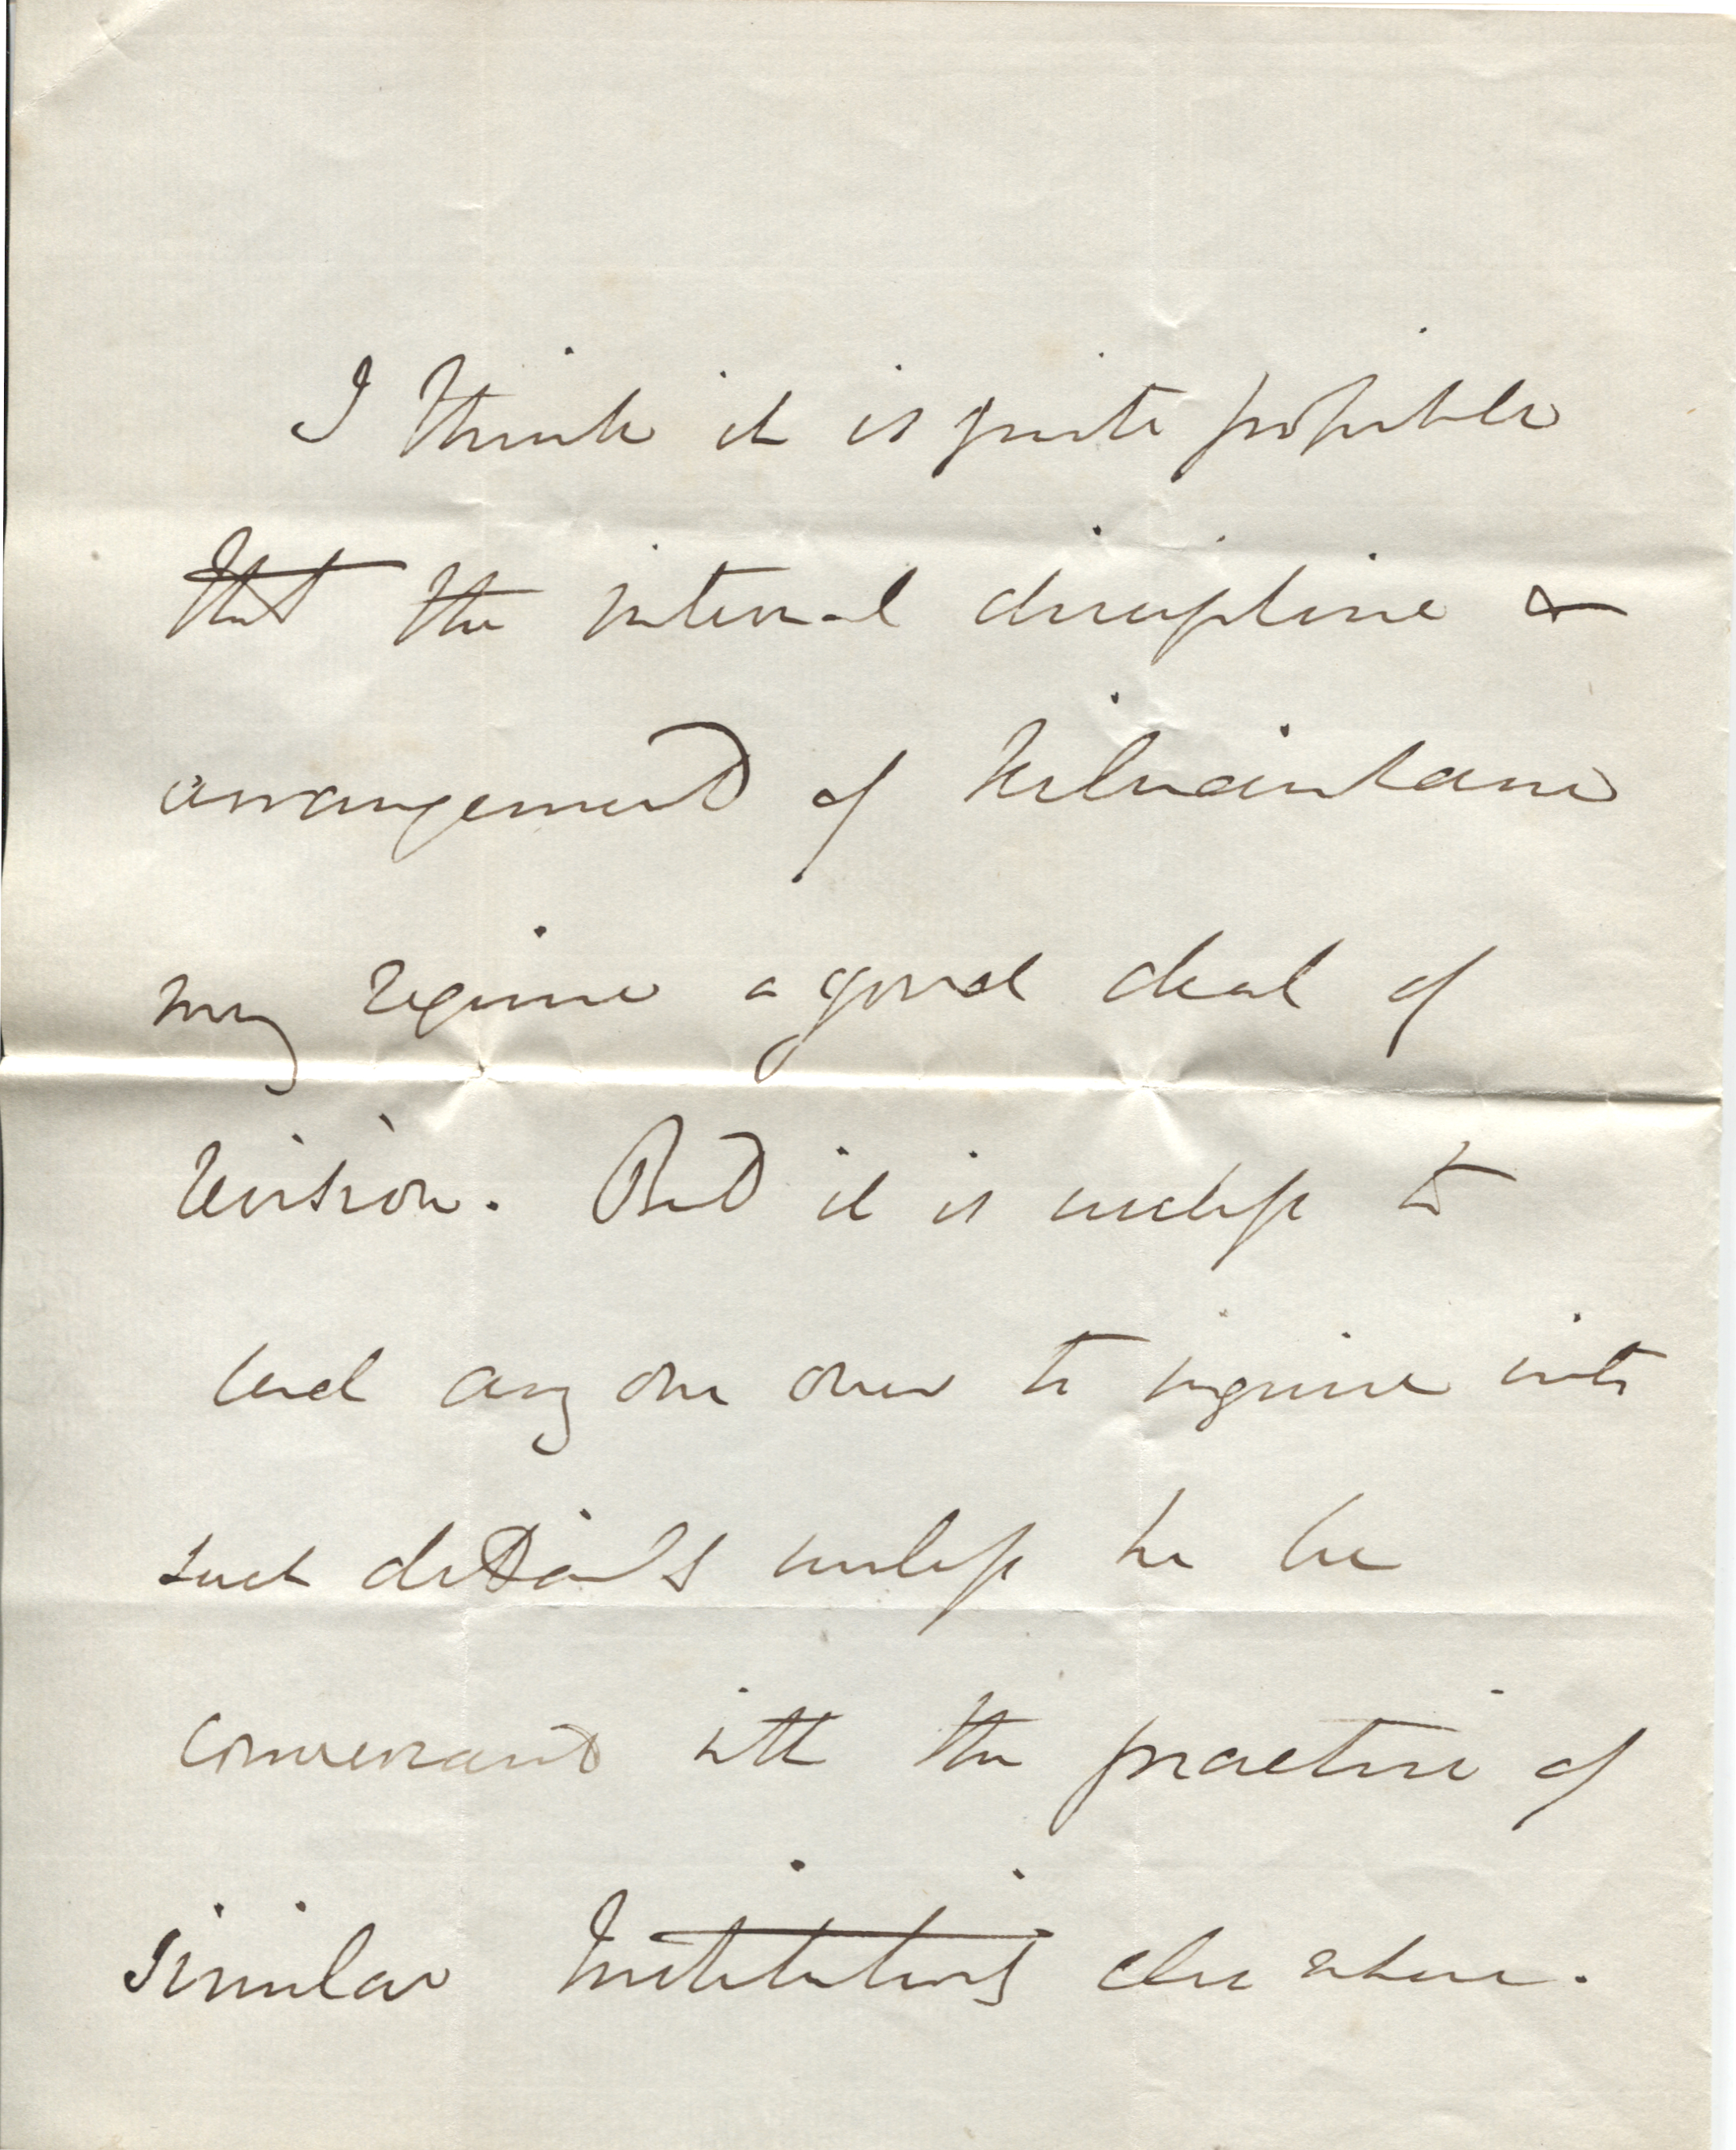 I think it is quite possible
that the internal discipline &
arrangement of Kilmainham
may require a good deal of
revision. But it is useless to
send any one over to inquire into
such details unless he be
conversant with the practice of
similar Institutions else where.